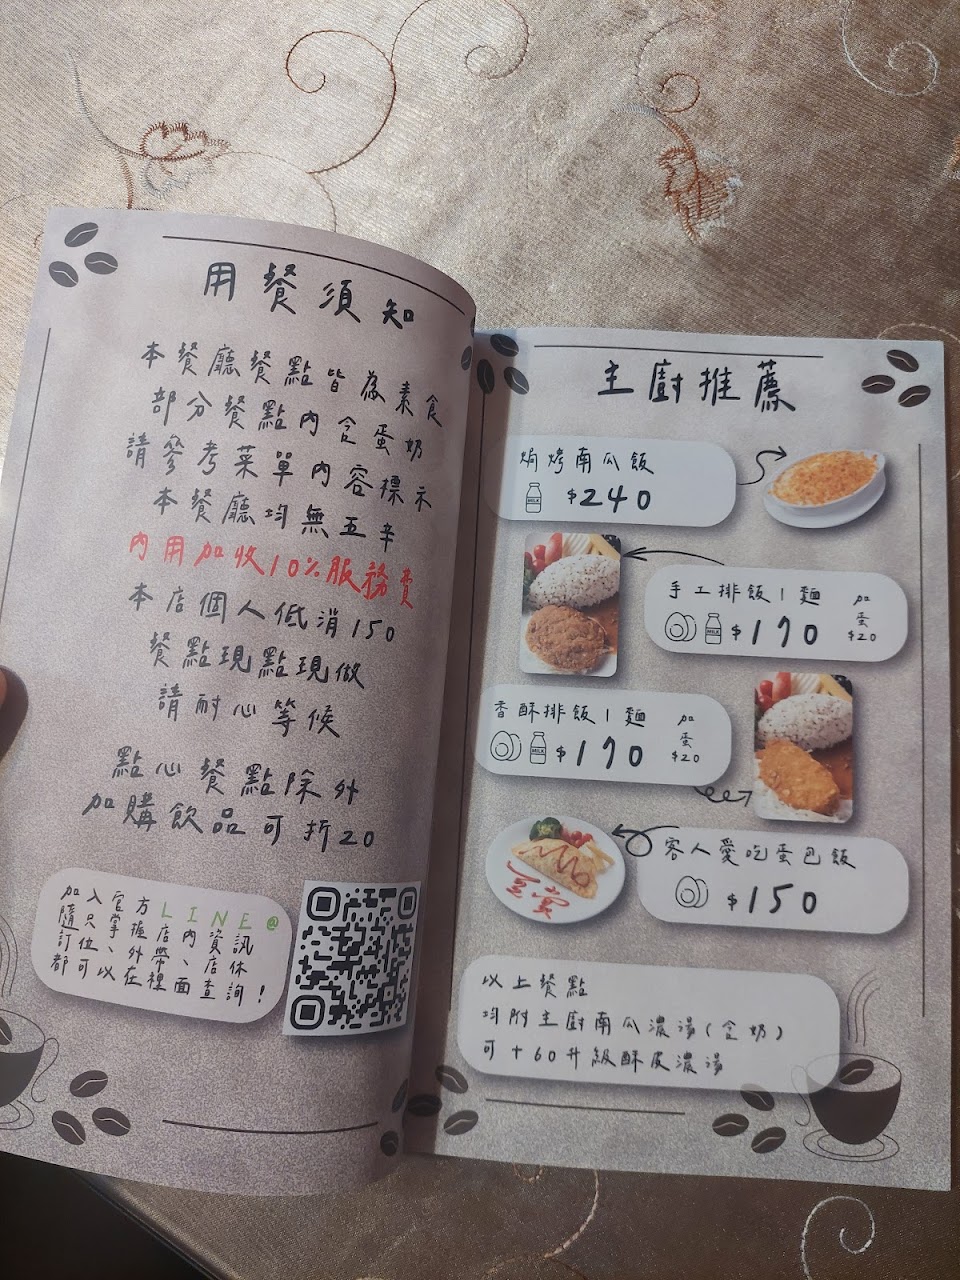 用餐須知
本餐廳餐點皆為素食
部分餐點內含蛋奶
請參考菜單內容標示
本餐廳均無五辛
內用加收10%服務費
本店個人低消150
餐點現點現做
請耐心等候
點心餐點除外
加購飲品可折20
加入官方LINE@
隨只掌握店內資訊
訂位、外帶、店休
都可以在裡面查詢!
主廚推薦
焗烤南瓜飯
MILK $240
手工排飯|麵
MILK $170
加蛋$20
香酥排飯|麵
MILK $170
加蛋$20
客人愛吃蛋包飯
$150
以上餐點
均附主廚南瓜濃湯(含奶)
可+60升級酥皮濃湯